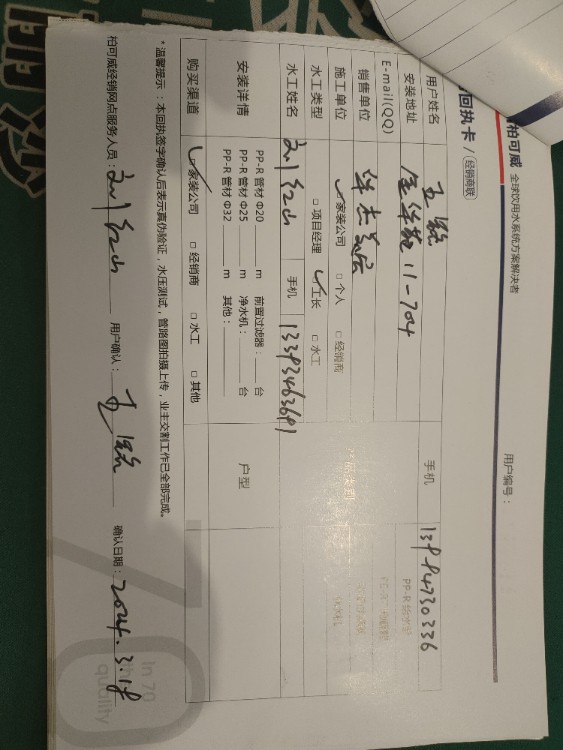 柏可威 全球饮用水系统方案解决者
回执卡 / 经销商联
用户编号：
用户姓名 王 手机 13994730336
安装地址 金华苑 11-704
E-mail(QQ) PP-R 给水管
销售单位 华杰
施工单位 ✓家装公司 □ 个人 □ 经销商
水工类型 □ 项目经理 ✓工长 □ 水工
水工姓名 刘红山 手机 13393463691
安装详情 PP-R 管材 Φ20 m 前置过滤器： 台 户型
PP-R 管材 Φ25 m 净水机： 台
PP-R 管材 Φ32 m 其他：
购买渠道 ✓家装公司 □ 经销商 □ 水工 □ 其他
*温馨提示：本回执签字确认后表示真伪验证，水压测试，管路图拍摄上传，业主交割工作已全部完成。
柏可威经销网点服务人员：刘红山 用户确认：王 确认日期：2024.3.18
In 70
quality